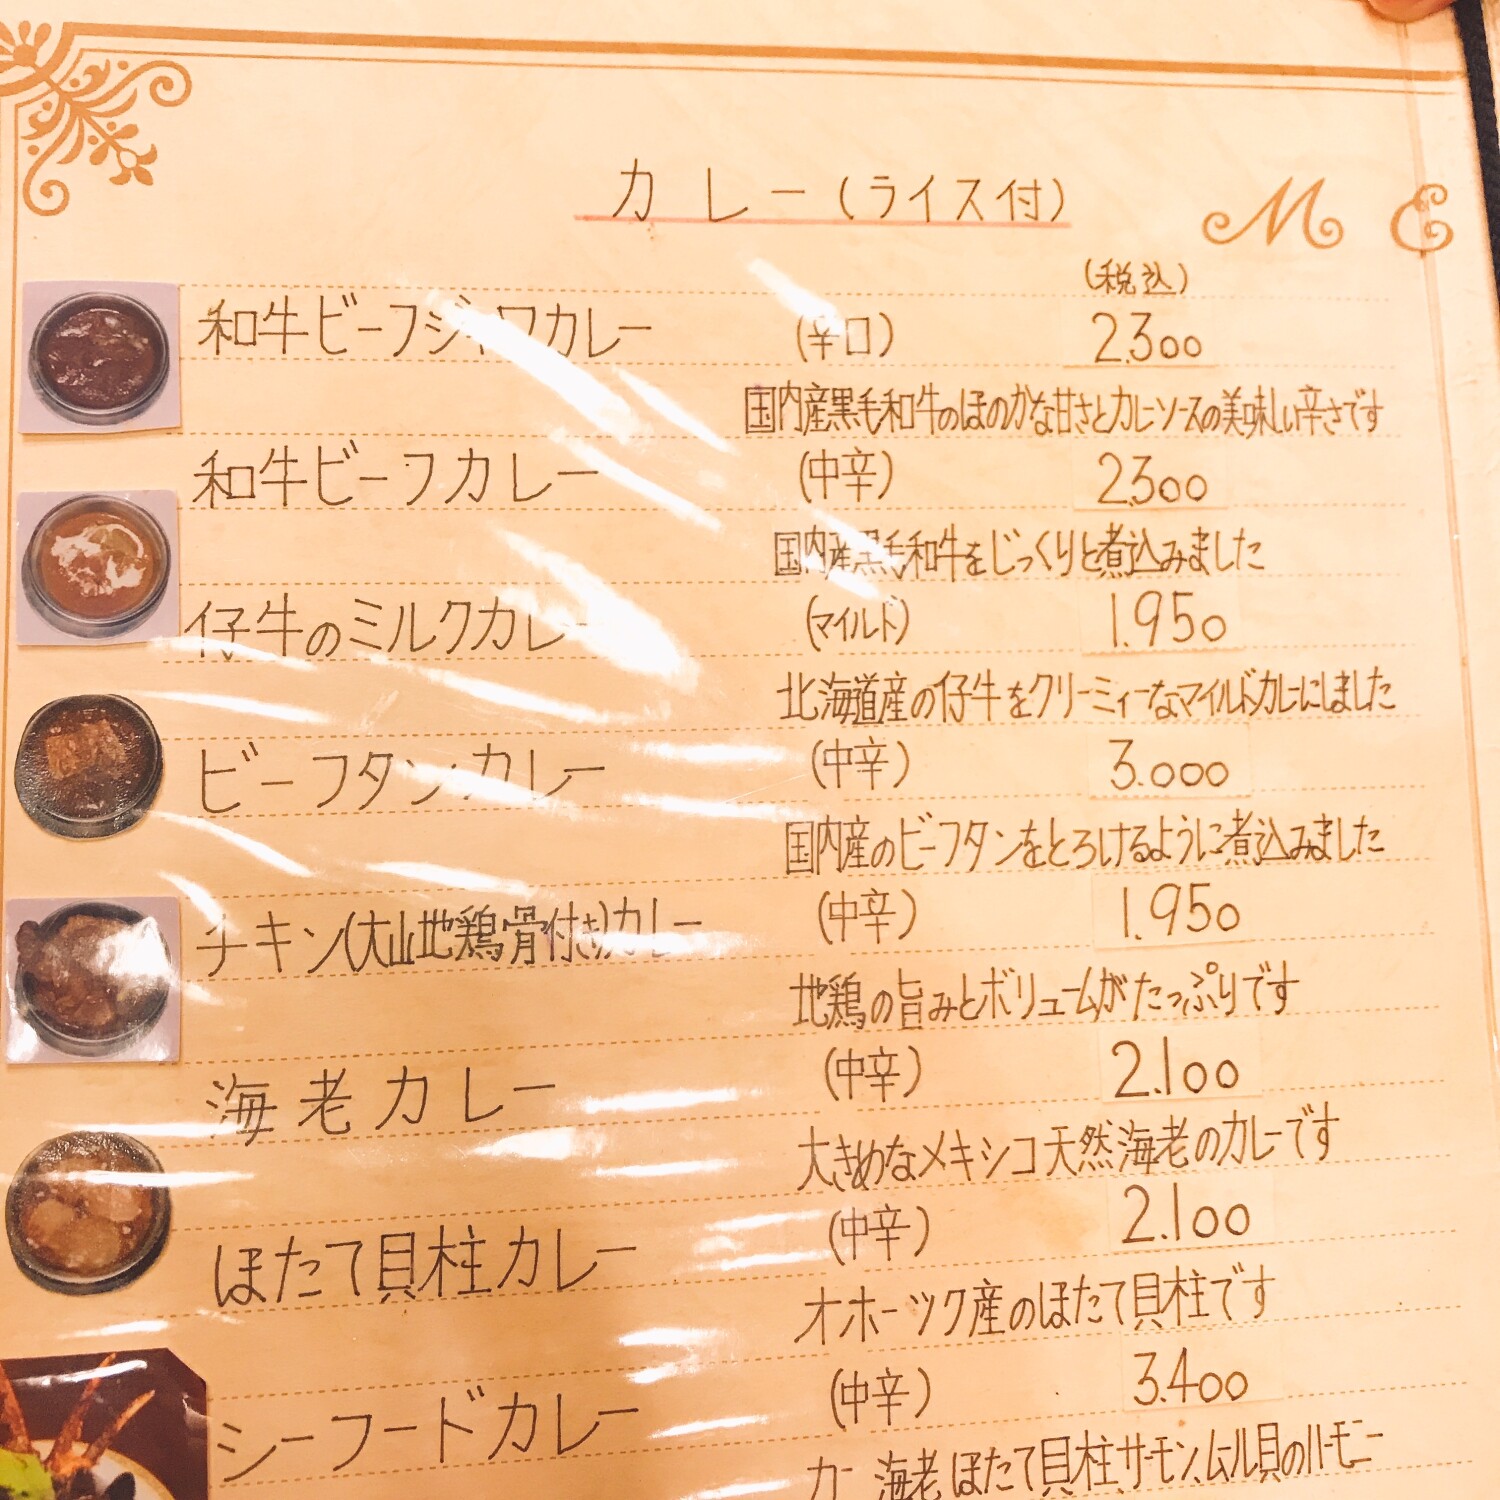 カレー(ライス付)
M E
(税込)
和牛ビーフジャワカレー (辛口) 2.300
国内産黒毛和牛のほのかな甘さとカレーソースの美味しい辛さです
和牛ビーフカレー (中辛) 2.300
国内産黒毛和牛をじっくりと煮込みました
仔牛のミルクカレー (マイルド) 1.950
北海道産の仔牛をクリーミィーなマイルドカレーにしました
ビーフタンカレー (中辛) 3.000
国内産のビーフタンをとろけるように煮込みました
チキン(大山地鶏骨付き)カレー (中辛) 1.950
地鶏の旨みとボリュームがたっぷりです
海老カレー (中辛) 2.100
大きめなメキシコ天然海老のカレーです
ほたて貝柱カレー (中辛) 2.100
オホーツク産のほたて貝柱です
シーフードカレー (中辛) 3.400
海老、ほたて貝柱、サーモン、ムール貝のハーモニー